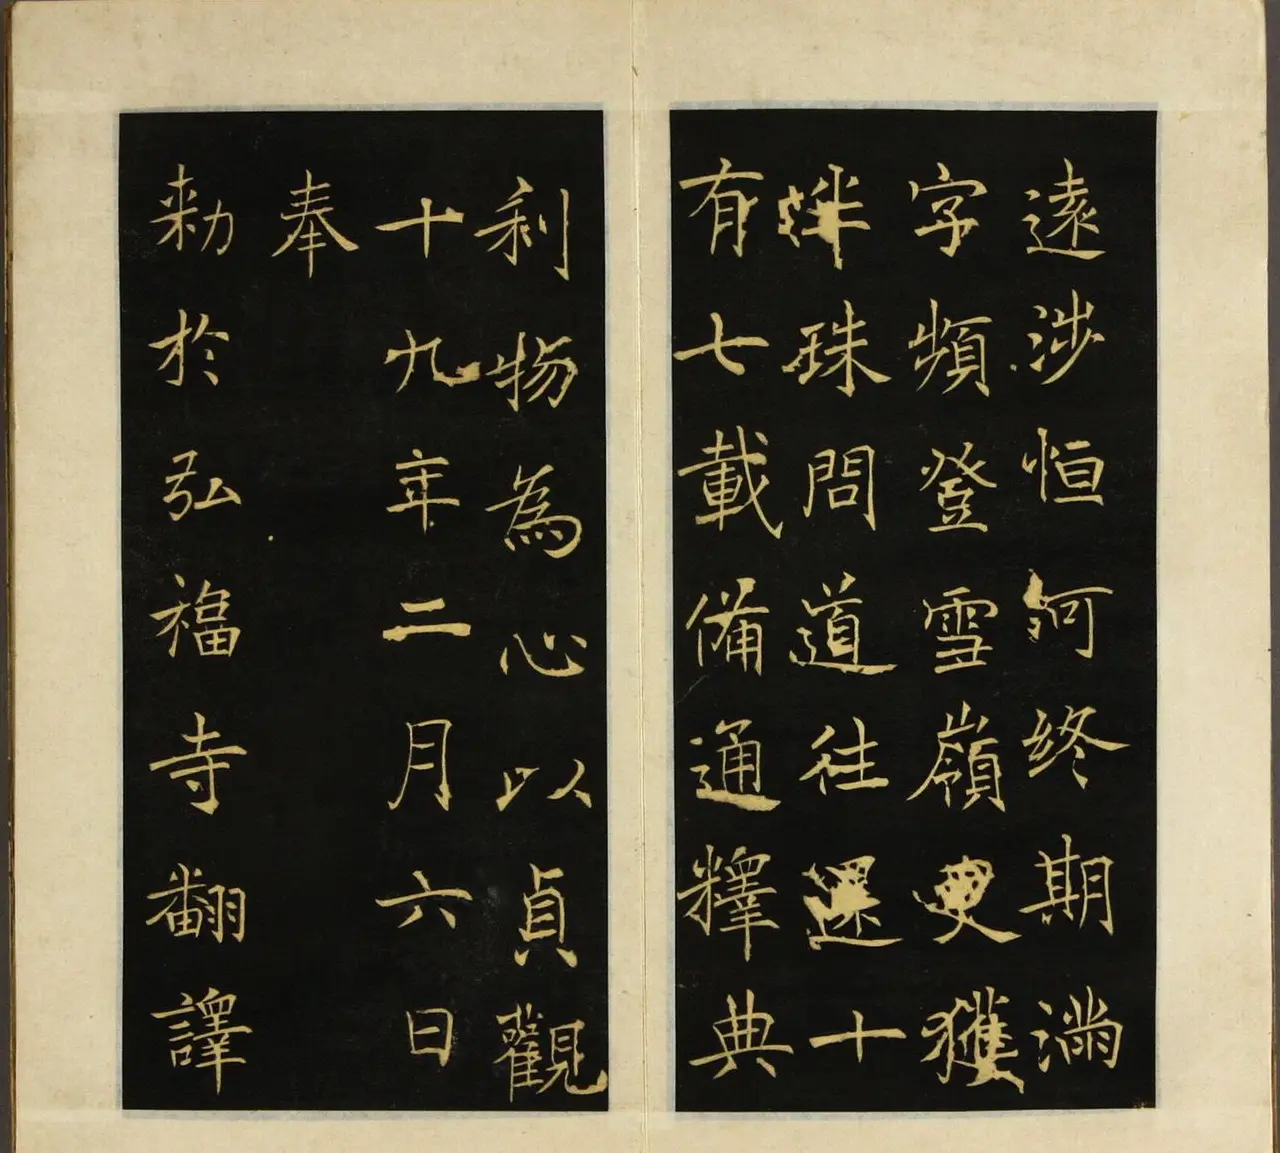 遠涉恒河終期滿
字頻登雪嶺更獲
半珠問道往還十
有七載備通釋典
利物為心以貞觀
十九年二月六日
奉
勑於弘福寺翻譯